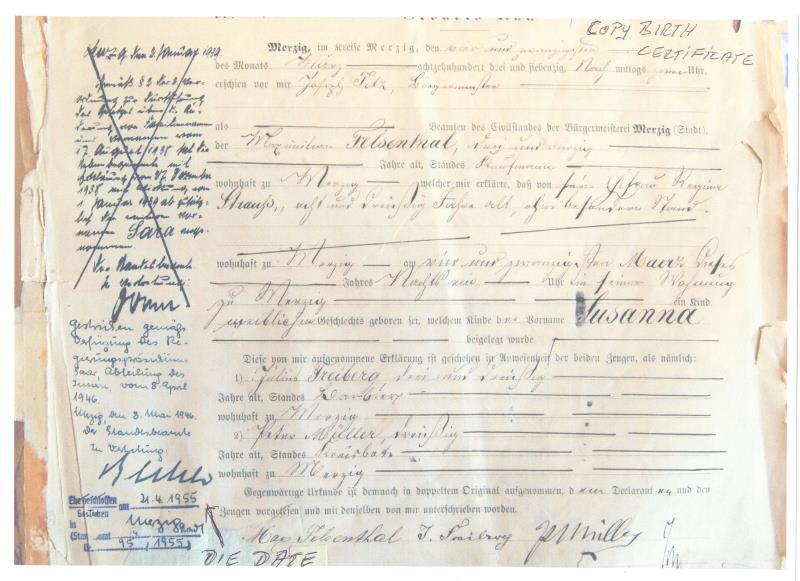 COPY BIRTH
CERTIFICATE
Geburts-Akt.
Merzig, im Kreise Merzig, den vier und zwanzigsten
des Monats Maerz achtzehnhundert drei und siebenzig, Nach mittags Uhr,
erschien vor mir Joseph Fitz, Bürgermeister
als Beamten des Civilstandes der Bürgermeisterei Merzig (Stadt),
der Maximilian Felsenthal, drei und vierzig
Jahre alt, Standes Kaufmann
wohnhaft zu Merzig welcher mir erklärte, daß von seiner Ehefrau Regina
Strauss, acht und dreißig Jahre alt, ohne besondern Stand,
wohnhaft zu Merzig am vier und zwanzigsten Maerz dieses
Jahres Nachts ein Uhr in seiner Wohnung
zu Merzig ein Kind
weiblichen Geschlechts geboren sei, welchem Kinde der Vorname Susanna
beigelegt wurde
Diese von mir aufgenommene Erklärung ist geschehen in Anwesenheit der beiden Zeugen, als nämlich:
1) Julius Freiberg drei und dreißig
Jahre alt, Standes
wohnhaft zu Merzig
2) Peter Müller, dreißig
Jahre alt, Standes Kreisbote
wohnhaft zu Merzig
Gegenwärtige Urkunde ist demnach in doppeltem Original aufgenommen, dem Declaranten und den
Zeugen vorgelesen und mit denselben von mir unterschrieben worden.
Max Felsenthal J. Freiberg P Müller
Merzig den 2. Januar 1939.
Gemäß § 2 der 2. Ver-
ordnung zur Durchführung
des Gesetzes über die Än-
derung von Familiennamen
und Vornamen vom
17 August 1938 hat die
Nebenbezeichnete mit
Erklärung vom 27 Dezember
1938 mit Wirkung vom
1 Januar 1939 ab zusätz-
lich den weiteren Vor-
namen Sara ange-
nommen.
Der Standesbeamte
in Vertretung:
Gestrichen gemäß
Verfügung des Re-
gierungspräsidiums
Saar Abteilung des
Innern, vom 8 April
1946.
Merzig, den 3. Mai 1946.
Der Standesbeamte
In Vertretung:
Eheschließen
Gestorben am 21.4.1955
in Merzig Stadt
(Standesamt
Nr. 95, 1955)
DIE DATE